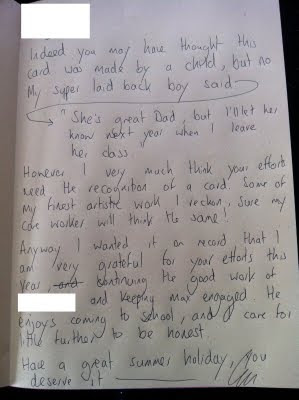 Indeed you may have thought this
card was made by a child, but no
My super laid back boy said
"She's great Dad, but I'll let her
know next year when I leave
her class.
However I very much think your efforts
need the recognition of a card. Some of
my finest artistic work I reckon, sure my
care worker will think the same!
Anyway I wanted it on record, that I
am very grateful for your efforts this
year, and continuing the good work of
and keeping max engaged. He
enjoys coming to school, and I care for
little further to be honest.
Have a great summer holiday, you
deserve it